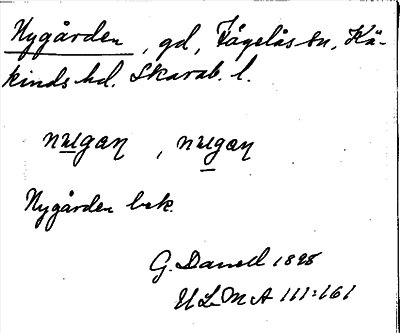 Nygården, gd, Fågelås sn, Kå-
kinds hd. Skarab. l.
nygaɳ, nygaɳ
Nygården bek.
G. Danell 1898
ULMA 111:161